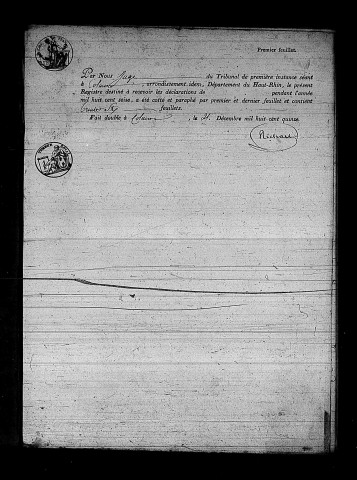 Premier feuillet.
Par Nous Juge du Tribunal de première instance séant
à Colmar, arrondissement idem, Département du Haut-Rhin, le présent
Registre destiné à recevoir les déclarations de pendant l'année
mil huit cent seize, a été coté et paraphé par premier et dernier feuillet et contient
feuillets.
Fait double à Colmar, le Décembre mil huit cent quinze.